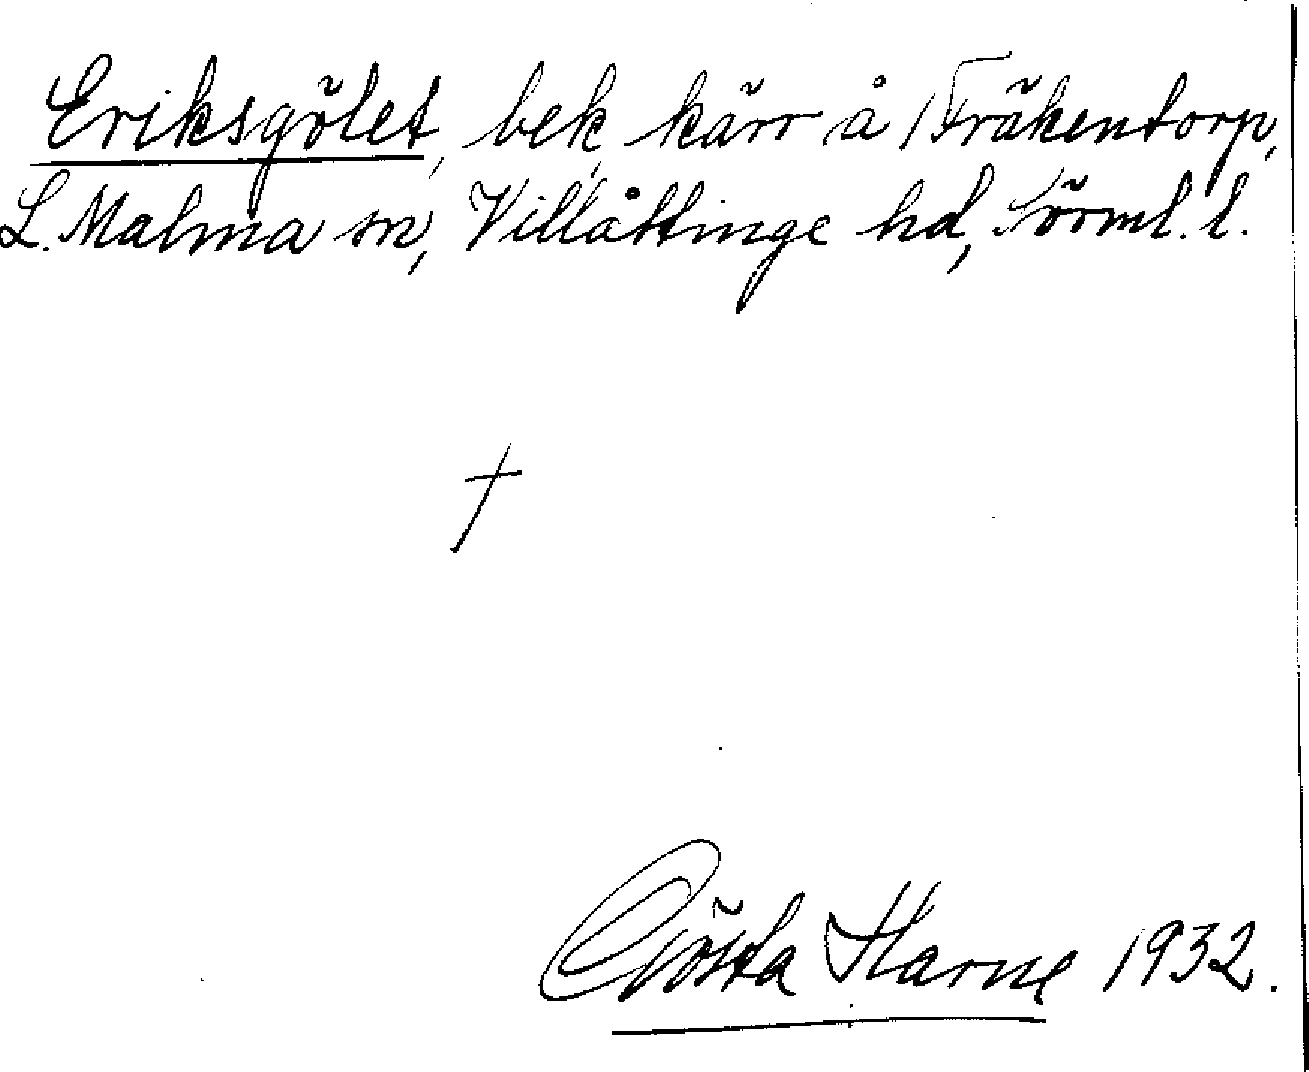 Eriksgölet, bek. kärr å Fräkentorp,
L. Malma sn, Villåttinge hd, Sörml. l.
†
Gösta Harne 1932.